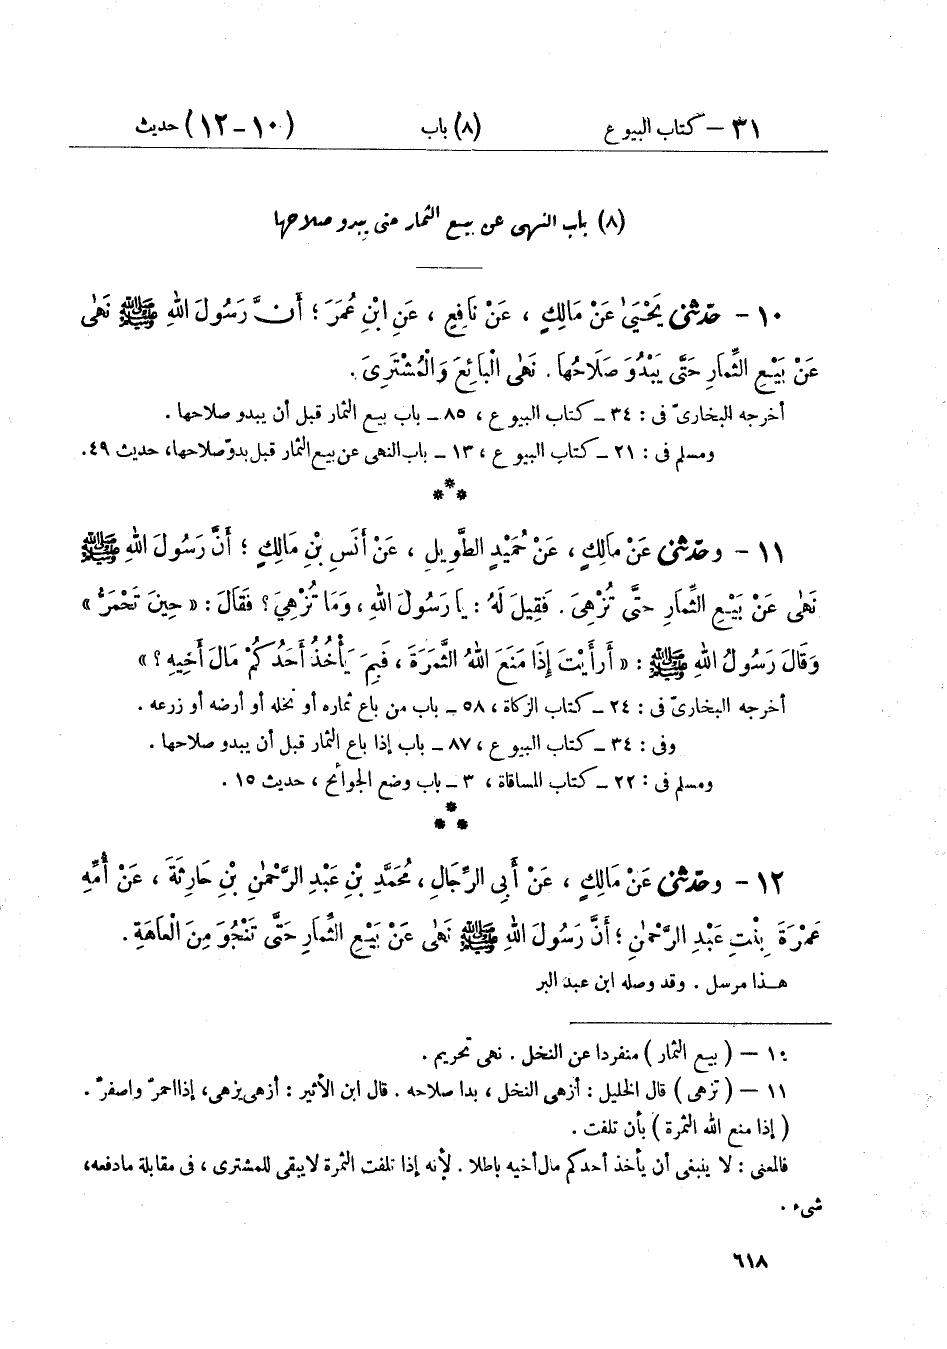 ٣١ – كتاب البيوع (٨) باب (١٠ – ١٢) حديث
(٨) باب النهى عن بيع الثمار متى يبدو صلاحها
١٠ – حَدَّثَنِي يَحْيَىٰ عَنْ مَالِكٍ ، عَنْ نَافِعٍ ، عَنِ ابْنِ عُمَرَ ؛ أَنَّ رَسُولَ اللهِ ﷺ نَهَىٰ
عَنْ بَيْعِ الثِّمَارِ حَتَّى يَبْدُوَ صَلَاحُهَا . نَهَىٰ الْبَائِعَ وَالْمُشْتَرِىَ .
أخرجه البخارىّ فى : ٣٤ – كتاب البيوع ، ٨٥ – باب بيع الثمار قبل أن يبدو صلاحها .
ومسلم فى : ٢١ – كتاب البيوع ، ١٣ – باب النهى عن بيع الثمار قبل بدوّ صلاحها، حديث ٤٩.
***
١١ – وحَدَّثَنِي عَنْ مَالِكٍ ، عَنْ حُمَيْدٍ الطَّوِيلِ ، عَنْ أَنَسِ بْنِ مَالِكٍ ؛ أَنَّ رَسُولَ اللهِ ﷺ
نَهَىٰ عَنْ بَيْعِ الثِّمَارِ حَتَّى تُزْهِىَ . فَقِيلَ لَهُ : يَا رَسُولَ اللهِ ، وَمَا تُزْهِيَ ؟ فَقَالَ : « حِينَ تَحْمَرُّ »
وَقَالَ رَسُولُ اللهِ ﷺ : « أَرَأَيْتَ إِذَا مَنَعَ اللهُ الثَّمَرَةَ ، فَبِمَ يَأْخُذُ أَحَدُكُمْ مَالَ أَخِيهِ ؟ »
أخرجه البخارىّ فى : ٢٤ – كتاب الزكاة ، ٥٨ – باب من باع ثماره أو نخله أو أرضه أو زرعه .
وفى : ٣٤ – كتاب البيوع ، ٨٧ – باب إذا باع الثمار قبل أن يبدو صلاحها .
ومسلم فى : ٢٢ – كتاب المساقاة ، ٣ – باب وضع الجوائح ، حديث ١٥ .
***
١٢ – وحَدَّثَنِي عَنْ مَالِكٍ ، عَنْ أَبِي الرِّجَالِ ، مُحَمَّدِ بْنِ عَبْدِ الرَّحْمَٰنِ بْنِ حَارِثَةَ ، عَنْ أُمِّهِ
عَمْرَةَ بِنْتِ عَبْدِ الرَّحْمَٰنِ ؛ أَنَّ رَسُولَ اللهِ ﷺ نَهَىٰ عَنْ بَيْعِ الثِّمَارِ حَتَّى تَنْجُوَ مِنَ الْعَاهَةِ .
هـذا مرسل . وقد وصله ابن عبد البر
١٠ – ( بيع الثمار ) منفردا عن النخل . نهى تحريم .
١١ – ( تزهى ) قال الخليل : أزهى النخل ، بدا صلاحه . قال ابن الأثير : أزهى يزهى، إذا احمرّ واصفرّ .
( إذا منع الله الثمرة ) بأن تلفت .
فالمعنى : لا ينبغى أن يأخذ أحدكم مال أخيه باطلا . لأنه إذا تلفت الثمرة لا يبقى للمشترى ، فى مقابلة ما دفعه،
شىء .
٦١٨